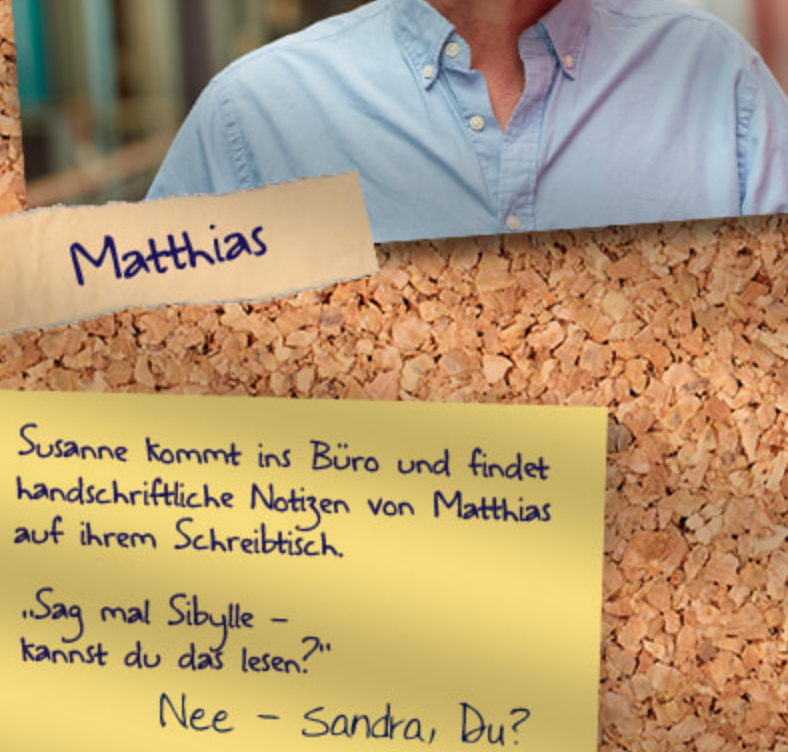 Matthias
Susanne kommt ins Büro und findet
handschriftliche Notizen von Matthias
auf ihrem Schreibtisch.
„Sag mal Sibylle –
kannst du das lesen?"
Nee – Sandra, Du?